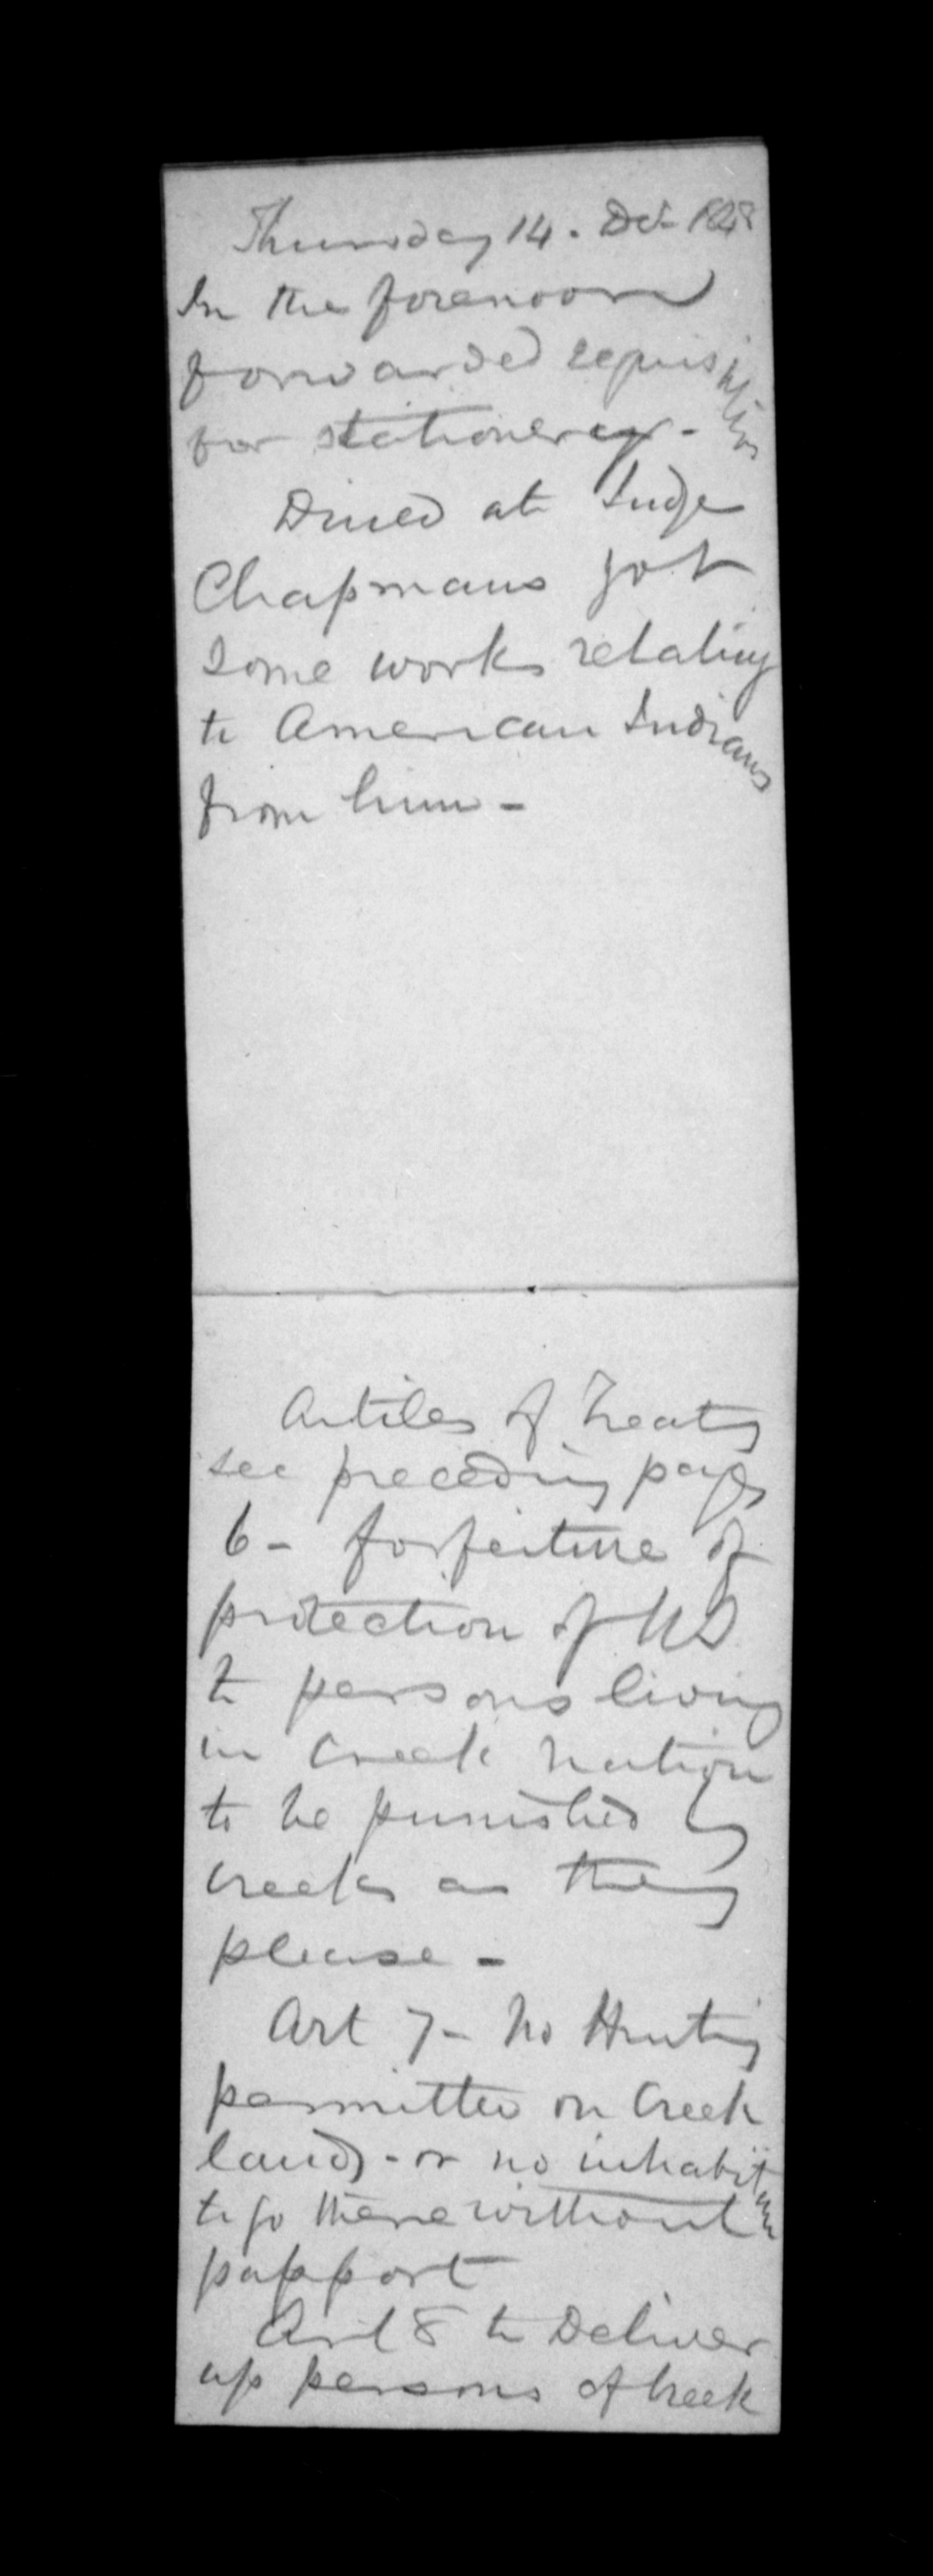 Thursday 14. Dec 1848
In the forenoon
forwarded requisition
for stationery -
Dined at Judge
Chapmans got
some works relating
to American Indians
from him -
Articles of Treaty
see preceding page
6 - forfeiture of
protection of US
to persons living
in Creek nation
to be punished by
Creeks as they
please -
Art 7 - No Hunting
permitted on Creek
lands - or no inhabitan
to go there without
passport
Art 8 to Deliver
up persons of Creek